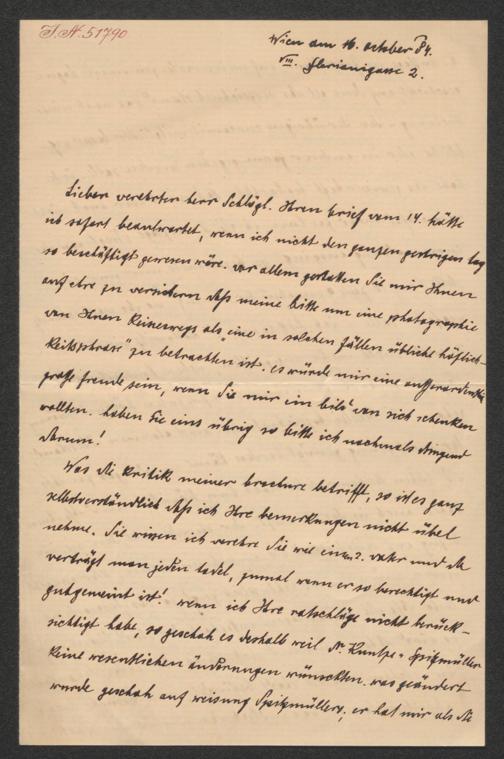 J.N. 51790
Wien am 16. october 84.
VIII. Florianigasse 2.
Lieber verehrter herr Schlögl. Ihren brief vom 14. hätte
ich sofort beantwortet, wenn ich nicht den ganzen gestrigen tag
so beschäftigt gewesen wäre. vor allem gestatten Sie mir Ihnen
auf ehre zu versichern daß meine bitte um eine photographie
von Ihnen keineswegs als „eine in solchen fällen übliche höflich-
keitsphrase" zu betrachten ist. es würde mir eine außerordentliche
große freude sein, wenn Sie mir ein bild von sich schenken
wollten. haben Sie eins übrig so bitte ich nochmals dringend
darum!
Was die kritik meiner brochure betrifft, so ist es ganz
selbstverständlich daß ich Ihre bemerkungen nicht übel
nehme. Sie wissen ich verehre Sie wie einen 2. vater und da
verträgt man jeden tadel, zumal wenn er so berechtigt und
gutgemeint ist! wenn ich Ihre ratschläge nicht berück-
sichtigt habe, so geschah es deshalb weil Dr Kuntze u Spitzmüller
keine wesentlichen änderungen wünschten. was geändert
wurde geschah auf weisung Spitzmüllers; er hat mir als die